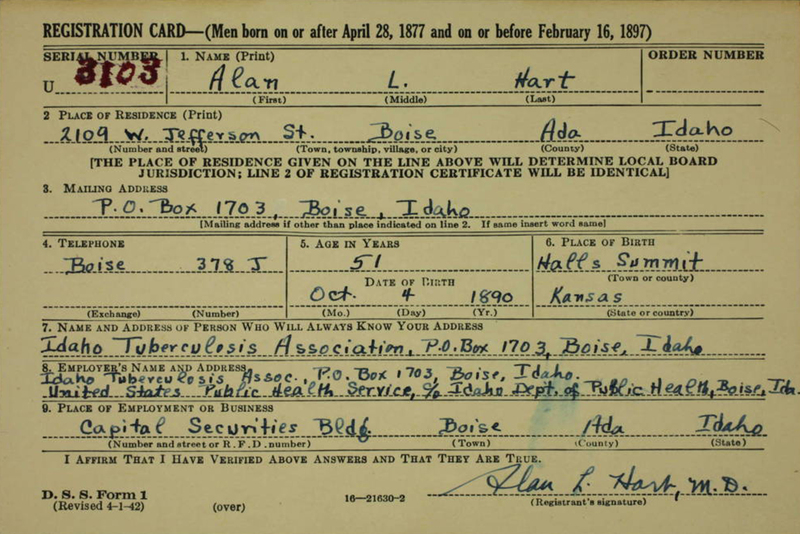 REGISTRATION CARD—(Men born on or after April 28, 1877 and on or before February 16, 1897)
SERIAL NUMBER 1. NAME (Print) ORDER NUMBER
U 3103 Alan L. Hart
(First) (Middle) (Last)
2 PLACE OF RESIDENCE (Print)
2109 W. Jefferson St. Boise Ada Idaho
(Number and street) (Town, township, village, or city) (County) (State)
[THE PLACE OF RESIDENCE GIVEN ON THE LINE ABOVE WILL DETERMINE LOCAL BOARD
JURISDICTION; LINE 2 OF REGISTRATION CERTIFICATE WILL BE IDENTICAL]
3. MAILING ADDRESS
P.O. Box 1703, Boise, Idaho
[Mailing address if other than place indicated on line 2. If same insert word same]
4. TELEPHONE 5. AGE IN YEARS 6. PLACE OF BIRTH
Boise 378 J 51 Halls Summit
DATE OF BIRTH (Town or county)
Oct. 4 1890 Kansas
(Exchange) (Number) (Mo.) (Day) (Yr.) (State or country)
7. NAME AND ADDRESS OF PERSON WHO WILL ALWAYS KNOW YOUR ADDRESS
Idaho Tuberculosis Association, P.O. Box 1703, Boise, Idaho
8. EMPLOYER'S NAME AND ADDRESS
Idaho Tuberculosis Assoc., P.O. Box 1703, Boise, Idaho.
United States Public Health Service, c/o Idaho Dept. of Public Health, Boise, Ida.
9. PLACE OF EMPLOYMENT OR BUSINESS
Capital Securities Bldg. Boise Ada Idaho
(Number and street or R. F. D. number) (Town) (County) (State)
I AFFIRM THAT I HAVE VERIFIED ABOVE ANSWERS AND THAT THEY ARE TRUE.
Alan L. Hart, M.D.
D. S. S. Form 1 16—21630-2 (Registrant's signature)
(Revised 4-1-42) (over)